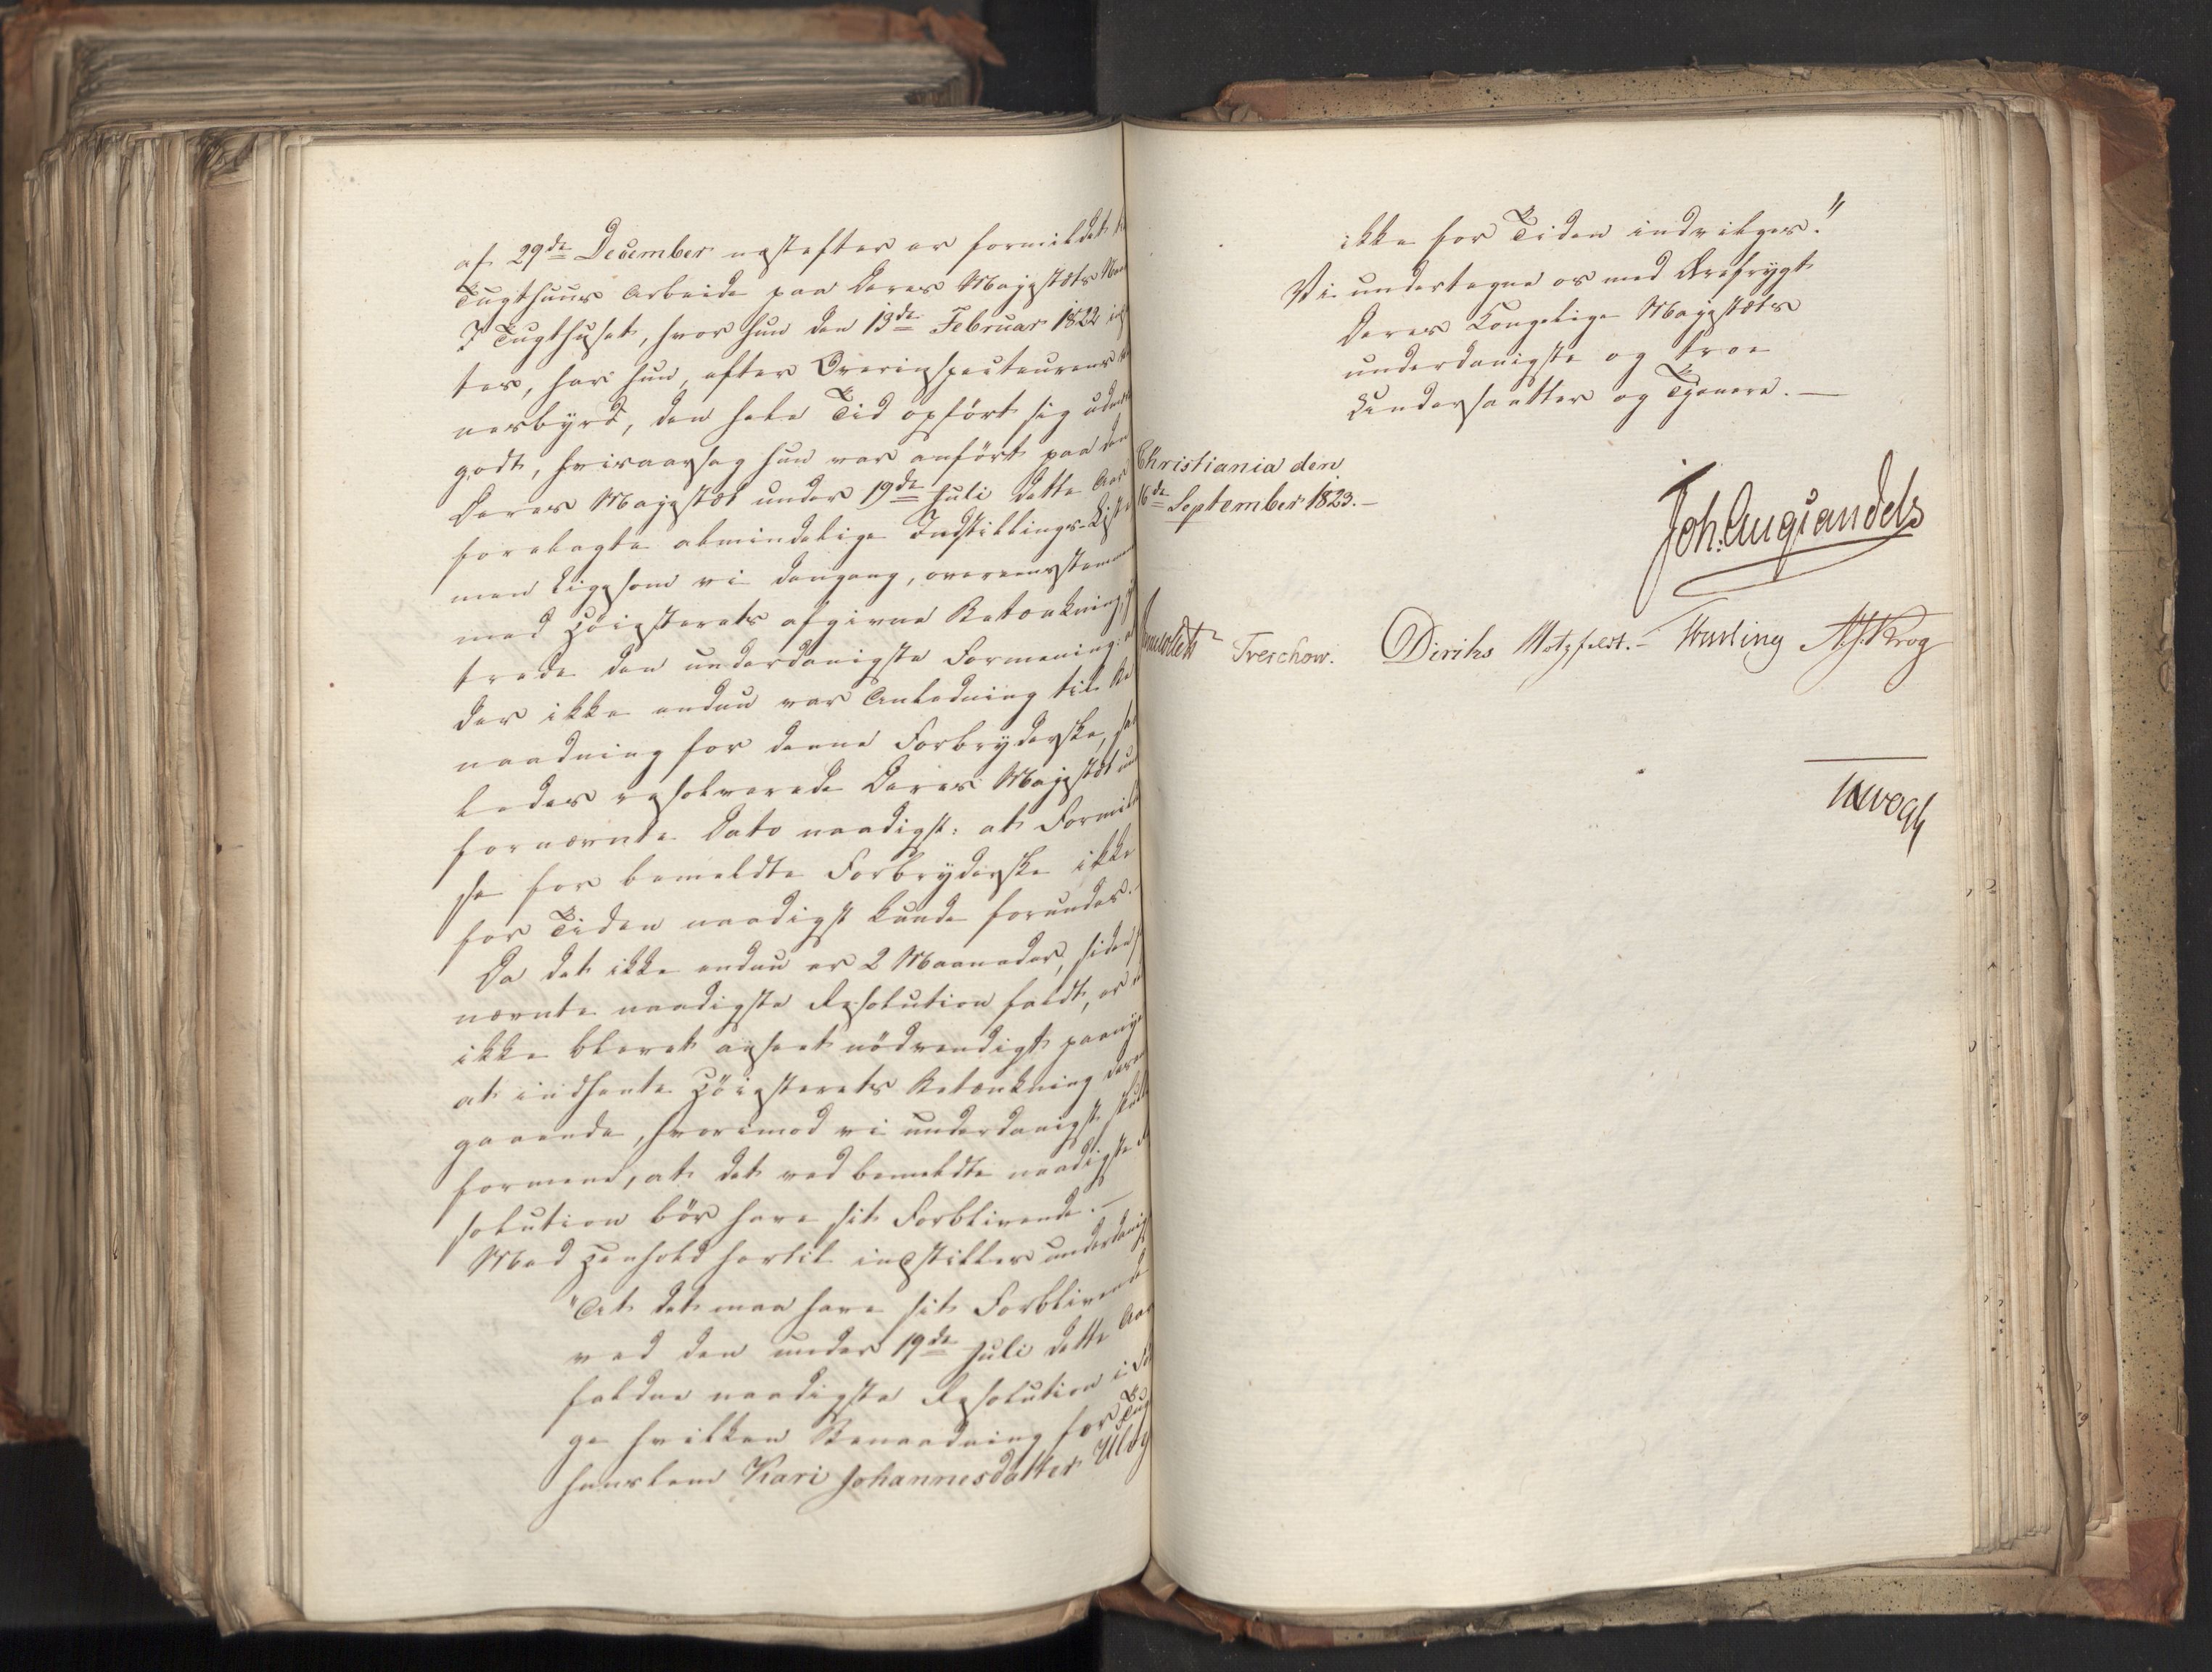 af 29de December næstefter er formildet til
Tugthuus Arbeide paa Deres Majestæts Naa
I Tugthuset, hvor hun den 13de Februar 1822 ind
tes, har hun, efter Overinspecteurens
nesbyrd, den hele Tid opført sig
godt, hvisaarsag hun var anført paa den
Deres Majestæt under 19de Juli dette Aar
forelagte almindelige Indstillings-Liste
men ligesom vi dengang, overeensstemmende
med Höiesterets afgivne Betænkning,
trode den underdanigste Formening: at
der ikke endnu var Anledning til Be
naadning for denne Forbryderske, saa
ledes resolverede Deres Majestæt un
fornævnte Dato naadigst: at Formild
se for bemeldte Forbryderske ikke
for Tiden naadigst kunde forundes.
Da det ikke endnu er 2 Maaneder, siden
nævnte naadigste Resolution faldt, er
ikke blevet anseet nödvendigt paany
at indhente Höiesterets Betænkning
gaaende, hvorimod vi underdanigst skulle
formene, at det ved bemeldte naadigste Re
solution bör have sit Forblivende. —
Med Henhold hertil indstilles underdanigst
"At det maa have sit Forblivende
ved den under 19de Juli dette Aar
faldne naadigste Resolution i Föl
ge hvilken Benaadning for Tug
huuslem Kari Johannesdatter Uldy
ikke for Tiden indvilges."
Vi undertegne os med Ærefrygt
Deres Kongelige Majestæts
underdanigste og troe
Undersaatter og Tjenere. —
Christiania den
16de September 1823. —
Joh: Aug Sandels
Treschow. Diriks Motzfeldt. — Krog